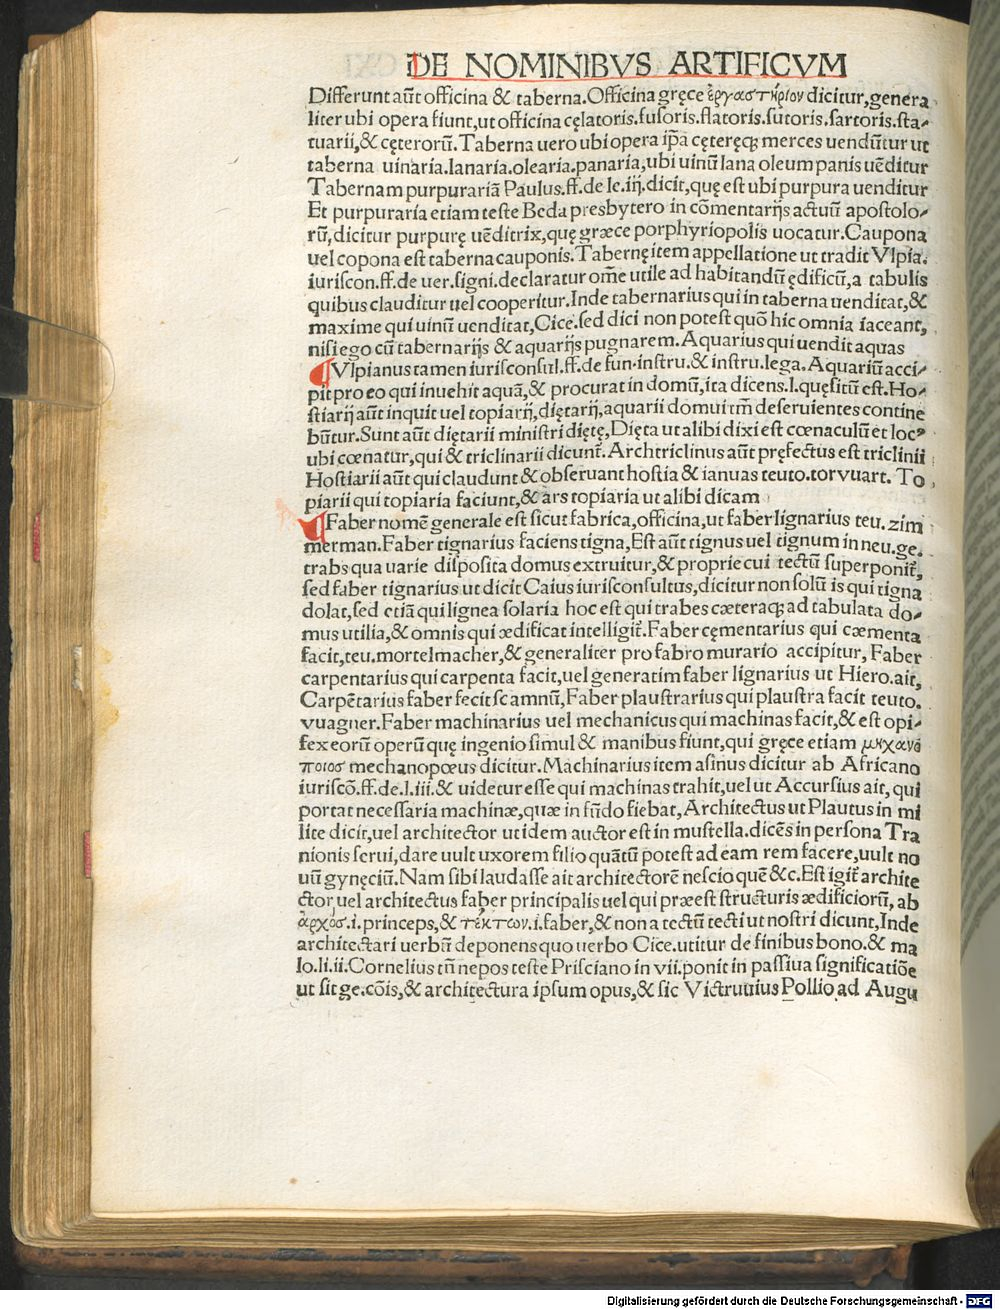 DE NOMINIBVS ARTIFICVM
Differunt aūt officina & taberna.Officina gręce ἐργαστήριον dicitur,genera
liter ubi opera fiunt,ut officina cęlatoris.fusoris.flatoris.sutoris.sartoris.sta-
tuarii,& cęterorū.Taberna uero ubi opera ip̄a cęteręq; merces uendūtur ut
taberna uinaria.lanaria.olearia.panaria,ubi uinū lana oleum panis uēditur
Tabernam purpurariā Paulus.ff.de le.iij.dicit,quę est ubi purpura uenditur
Et purpuraria etiam teste Beda presbytero in cōmentarijs actuū apostolo-
rū,dicitur purpurę uēditrix,quę græce porphyriopolis uocatur.Caupona
uel copona est taberna cauponis.Tabernę item appellatione ut tradit Vlpia.
iuriscon.ff.de uer.signi.declaratur om̄e utile ad habitandū ędificiū,a tabulis
quibus clauditur uel cooperitur.Inde tabernarius qui in taberna uenditat,&
maxime qui uinū uenditat,Cice.sed dici non potest quō hic omnia iaceant,
nisi ego cū tabernarijs & aquarijs pugnarem.Aquarius qui uendit aquas
¶Vlpianus tamen iurisconsul.ff.de fun.instru.& instru.lega.Aquariū acci-
pit pro eo qui inuehit aquā,& procurat in domū,ita dicens.l.quęsitū est.Ho-
stiarij aūt inquit uel topiarij,diętarij,aquarii domui tm̄ deseruientes contine
būtur.Sunt aūt diętarii ministri diętę,Dięta ut alibi dixi est cœnaculū et locꝰ
ubi cœnatur,qui & triclinarii dicunt̄.Architriclinus aūt pręfectus est triclinii
Hostiarii aūt qui claudunt & obseruant hostia & ianuas teuto.torvuart. To
piarii qui topiaria faciunt,& ars topiaria ut alibi dicam
¶Faber nomē generale est sicut fabrica,officina,ut faber lignarius teu. zim
merman.Faber tignarius faciens tigna,Est aūt tignus uel tignum in neu.ge.
trabs qua uarie disposita domus extruitur,& proprie cui tectū superponit̄,
sed faber tignarius ut dicit Caius iurisconsultus,dicitur non solū is qui tigna
dolat,sed etiā qui lignea solaria hoc est qui trabes cæteraq; ad tabulata do-
mus utilia,& omnis qui ædificat intelligit̄.Faber cęmentarius qui cæmenta
facit,teu.mortelmacher,& generaliter pro fabro murario accipitur, Faber
carpentarius qui carpenta facit,uel generatim faber lignarius ut Hiero.ait,
Carpētarius faber fecit scamnū,Faber plaustrarius qui plaustra facit teuto.
vuagner.Faber machinarius uel mechanicus qui machinas facit,& est opi-
fex eorū operū quę ingenio simul & manibus fiunt,qui gręce etiam μηχανο
ποιοσ mechanopœus dicitur.Machinarius item asinus dicitur ab Africano
iuriscō.ff.de.l.iii.& uidetur esse qui machinas trahit,uel ut Accursius ait, qui
portat necessaria machinæ,quæ in fūdo fiebat,Architectus ut Plautus in mi
lite dicit,uel architector ut idem auctor est in mustella.dicēs in persona Tra
nionis serui,dare uult uxorem filio quātū potest ad eam rem facere,uult no
uū gynęciū.Nam sibi laudasse ait architectorē nescio quē &c.Est igit̄ archite
ctor uel architectus faber principalis uel qui præest structuris ædificiorū, ab
ἀρχόσ.i.princeps,& τέκτων.i.faber,& non a tectū tecti ut nostri dicunt,Inde
architectari uerbū deponens quo uerbo Cice.utitur de finibus bono.& ma
lo.li.ii.Cornelius tn̄ nepos teste Prisciano in vii.ponit in passiua significatiōe
ut sit ge.cōis,& architectura ipsum opus,& sic Victruuius Pollio ad Augu
Digitalisierung gefördert durch die Deutsche Forschungsgemeinschaft - DFG